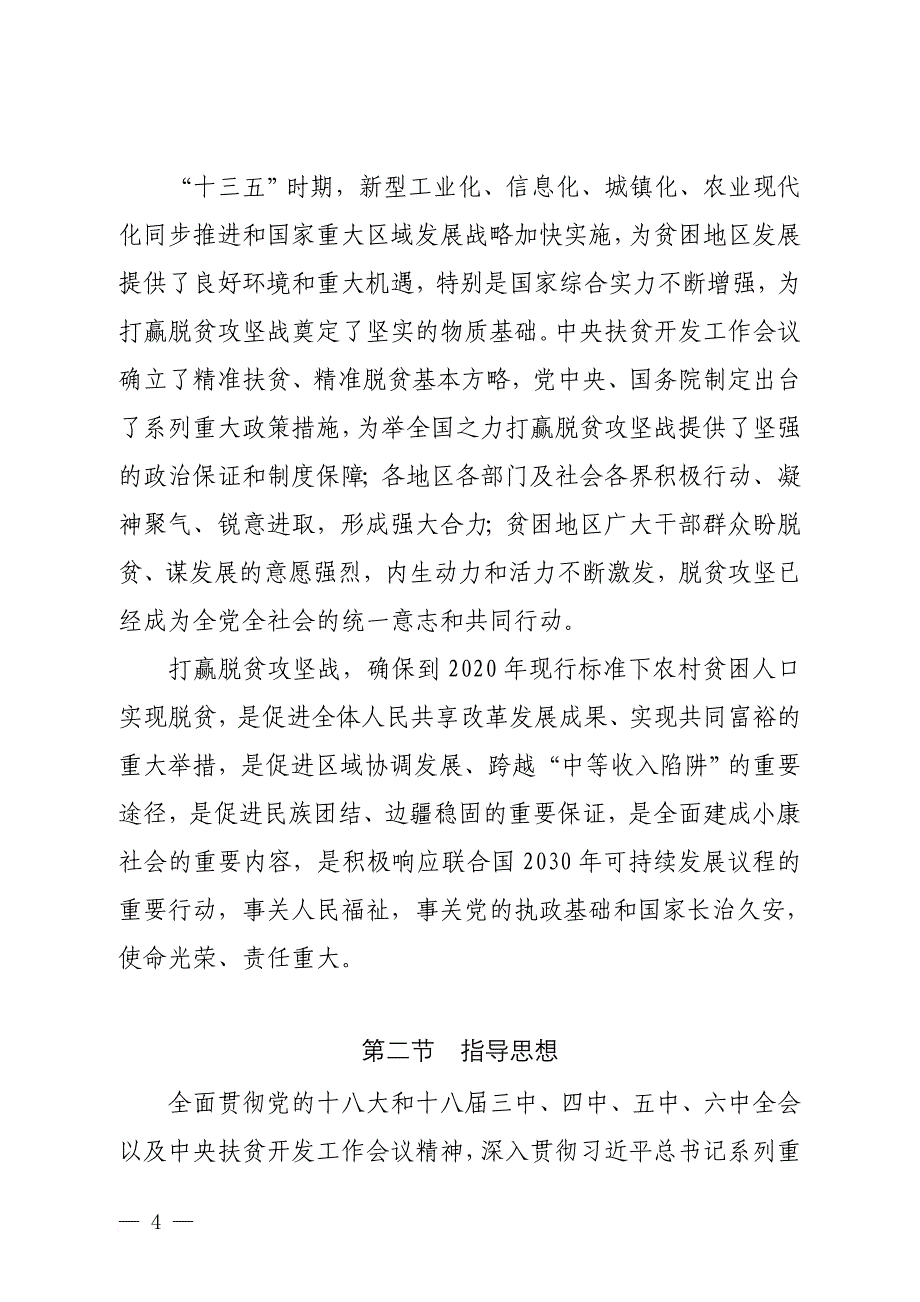 “十三五”时期，新型工业化、信息化、城镇化、农业现代
化同步推进和国家重大区域发展战略加快实施，为贫困地区发展
提供了良好环境和重大机遇，特别是国家综合实力不断增强，为
打赢脱贫攻坚战奠定了坚实的物质基础。中央扶贫开发工作会议
确立了精准扶贫、精准脱贫基本方略，党中央、国务院制定出台
了系列重大政策措施，为举全国之力打赢脱贫攻坚战提供了坚强
的政治保证和制度保障；各地区各部门及社会各界积极行动、凝
神聚气、锐意进取，形成强大合力；贫困地区广大干部群众盼脱
贫、谋发展的意愿强烈，内生动力和活力不断激发，脱贫攻坚已
经成为全党全社会的统一意志和共同行动。
打赢脱贫攻坚战，确保到 2020 年现行标准下农村贫困人口
实现脱贫，是促进全体人民共享改革发展成果、实现共同富裕的
重大举措，是促进区域协调发展、跨越“中等收入陷阱”的重要
途径，是促进民族团结、边疆稳固的重要保证，是全面建成小康
社会的重要内容，是积极响应联合国 2030 年可持续发展议程的
重要行动，事关人民福祉，事关党的执政基础和国家长治久安，
使命光荣、责任重大。
第二节　指导思想
全面贯彻党的十八大和十八届三中、四中、五中、六中全会
以及中央扶贫开发工作会议精神，深入贯彻习近平总书记系列重
— 4 —